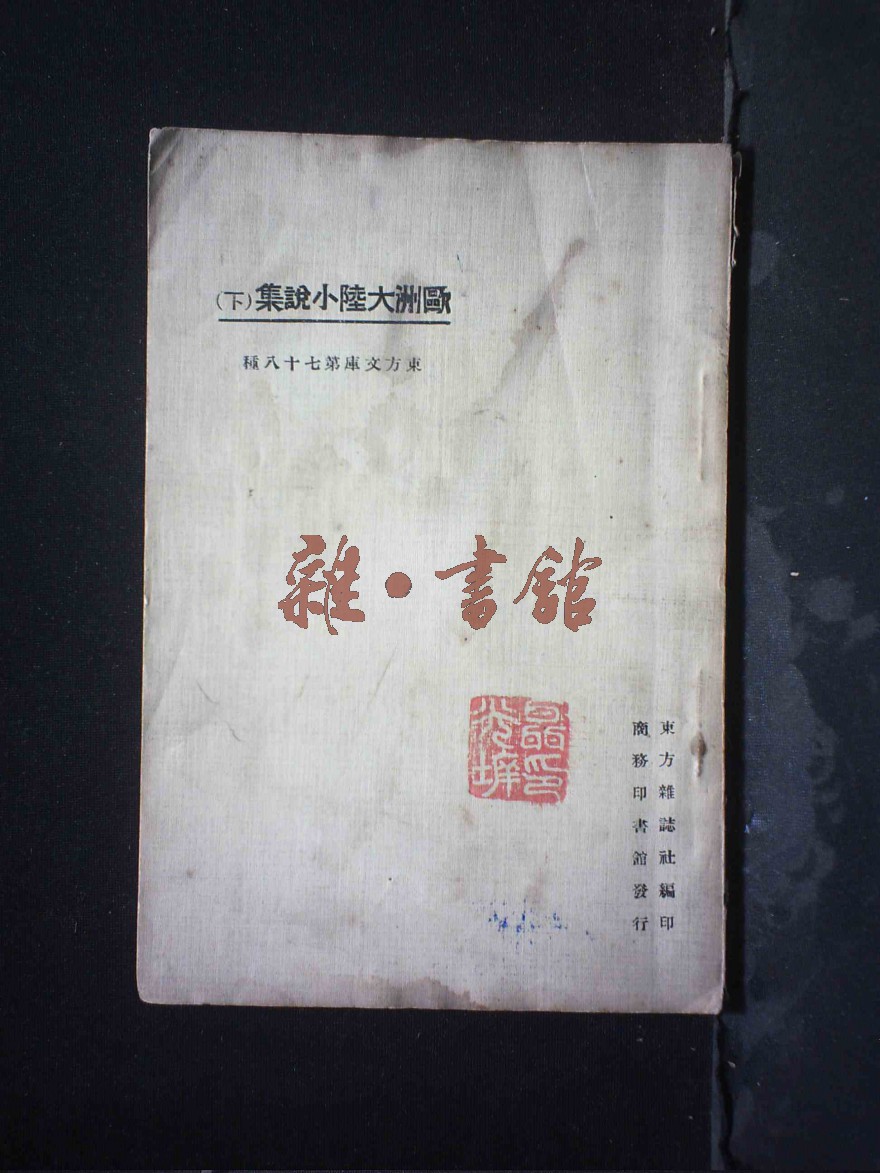 歐洲大陸小說集(下)
東方文庫第七十八種
雜•書館
東方雜誌社編印
商務印書館發行